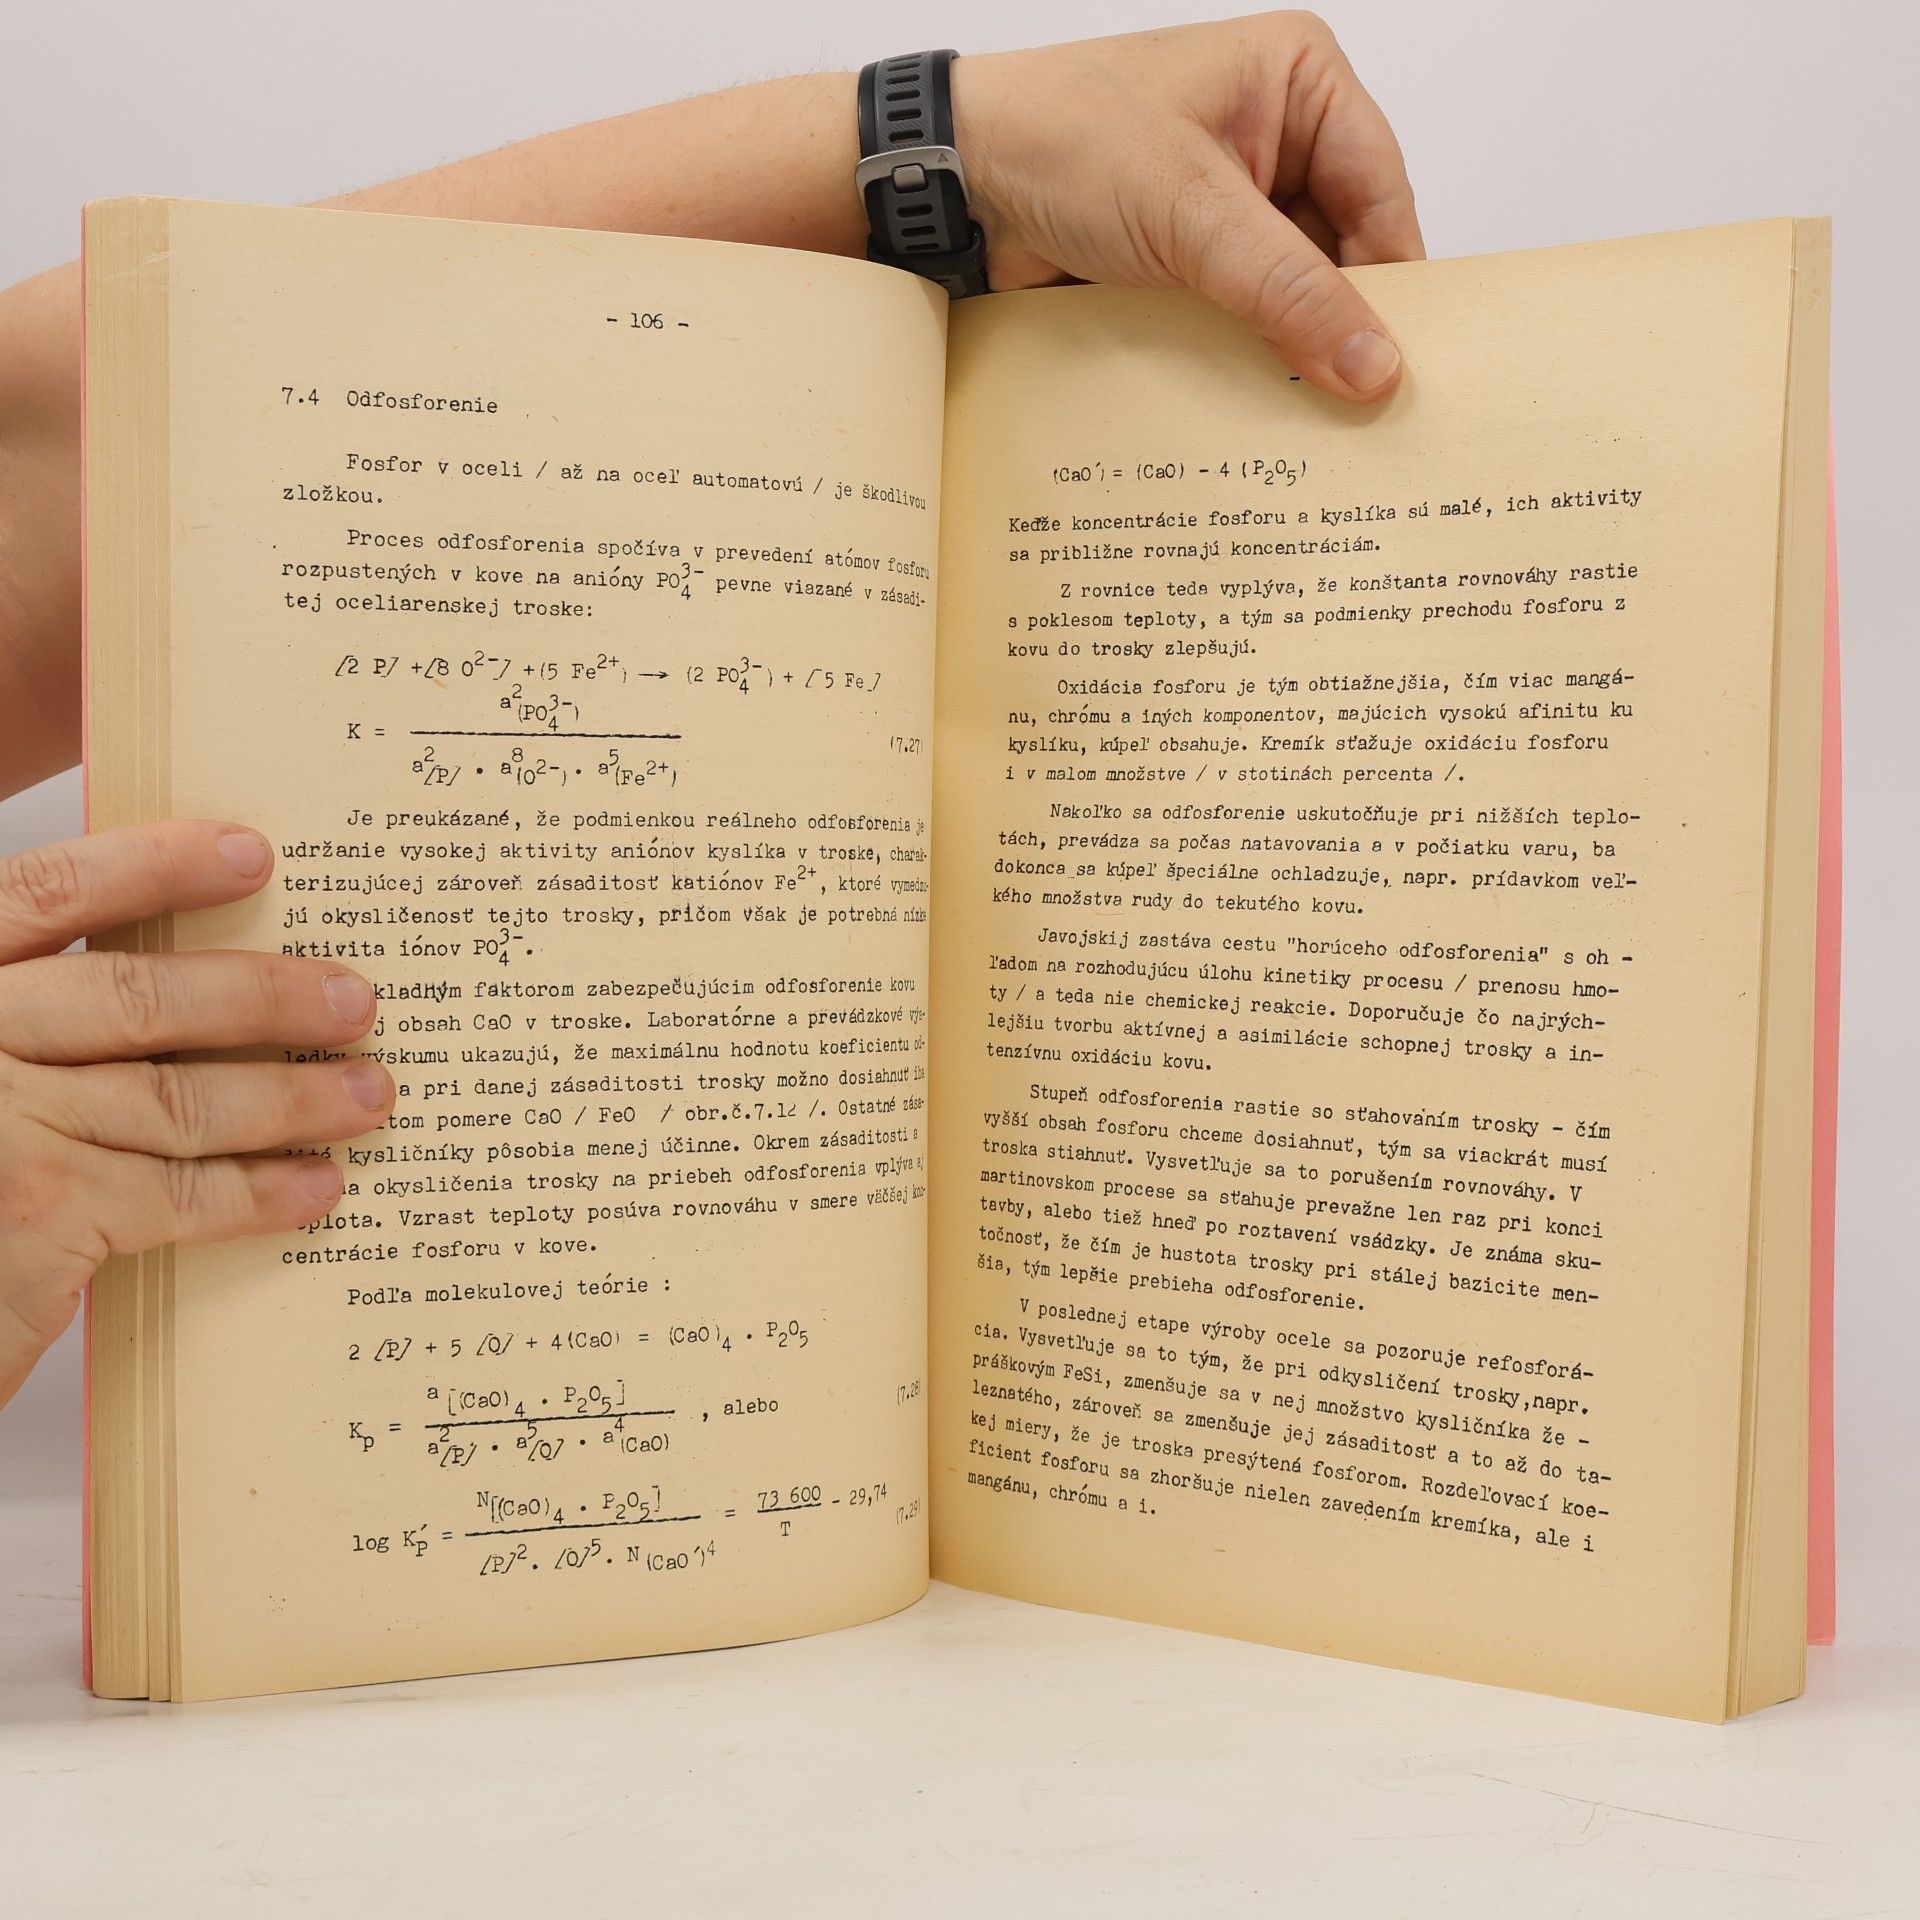 - 106 -
7.4 Odfosforenie
Fosfor v oceli / až na oceľ automatovú / je škodlivou
zložkou.
Proces odfosforenia spočíva v prevedení atómov fosforu
rozpustených v kove na anióny PO₄³⁻ pevne viazané v zásadi-
tej oceliarenskej troske:
[2 P] +[8 O²⁻] +(5 Fe²⁺) → (2 PO₄³⁻) + [5 Fe]
a²(PO₄³⁻)
K =
(7.27)
a²[P] . a⁸(O²⁻) . a⁵(Fe²⁺)
Je preukázané, že podmienkou reálneho odfosforenia je
udržanie vysokej aktivity aniónov kyslíka v troske, charak-
terizujúcej zároveň zásaditosť katiónov Fe²⁺, ktoré vymedzu-
jú okysličenosť tejto trosky, pričom však je potrebná nízka
aktivita iónov PO₄³⁻.
kladným faktorom zabezpečujúcim odfosforenie kovu
j obsah CaO v troske. Laboratórne a prevádzkové výs-
ledky výskumu ukazujú, že maximálnu hodnotu koeficientu od-
a pri danej zásaditosti trosky možno dosiahnuť iba
tom pomere CaO / FeO / obr.č.7.12 /. Ostatné zása-
kysličníky pôsobia menej účinne. Okrem zásaditosti a
a okysličenia trosky na priebeh odfosforenia vplýva aj
eplota. Vzrast teploty posúva rovnováhu v smere väčšej kon-
centrácie fosforu v kove.
Podľa molekulovej teórie :
2 [P] + 5 [O] + 4(CaO) = (CaO)₄ . P₂O₅
a [(CaO)₄ . P₂O₅]
Kp = , alebo
(7.28)
a²[P] . a⁵[O] . a⁴(CaO)
N[(CaO)₄ . P₂O₅] 73 600
log K´p = = - 29,74
(7.29)
[P]². [O]⁵. N(CaO´)⁴ T
-
(CaO´) = (CaO) - 4 (P₂O₅)
Keďže koncentrácie fosforu a kyslíka sú malé, ich aktivity
sa približne rovnajú koncentráciám.
Z rovnice teda vyplýva, že konštanta rovnováhy rastie
s poklesom teploty, a tým sa podmienky prechodu fosforu z
kovu do trosky zlepšujú.
Oxidácia fosforu je tým obtiažnejšia, čím viac mangá-
nu, chrómu a iných komponentov, majúcich vysokú afinitu ku
kyslíku, kúpeľ obsahuje. Kremík sťažuje oxidáciu fosforu
i v malom množstve / v stotinách percenta /.
Nakoľko sa odfosforenie uskutočňuje pri nižších teplo-
tách, prevádza sa počas natavovania a v počiatku varu, ba
dokonca sa kúpeľ špeciálne ochladzuje, napr. prídavkom veľ-
kého množstva rudy do tekutého kovu.
Javojskij zastáva cestu "horúceho odfosforenia" s oh -
ľadom na rozhodujúcu úlohu kinetiky procesu / prenosu hmo-
ty / a teda nie chemickej reakcie. Doporučuje čo najrých-
lejšiu tvorbu aktívnej a asimilácie schopnej trosky a in-
tenzívnu oxidáciu kovu.
Stupeň odfosforenia rastie so sťahovaním trosky - čím
vyšší obsah fosforu chceme dosiahnuť, tým sa viackrát musí
troska stiahnuť. Vysvetľuje sa to porušením rovnováhy. V
martinovskom procese sa sťahuje prevažne len raz pri konci
tavby, alebo tiež hneď po roztavení vsádzky. Je známa sku-
točnosť, že čím je hustota trosky pri stálej bazicite men-
šia, tým lepšie prebieha odfosforenie.
V poslednej etape výroby ocele sa pozoruje refosforá-
cia. Vysvetľuje sa to tým, že pri odkysličení trosky,napr.
práškovým FeSi, zmenšuje sa v nej množstvo kysličníka že -
leznatého, zároveň sa zmenšuje jej zásaditosť a to až do ta-
kej miery, že je troska presýtená fosforom. Rozdeľovací koe-
ficient fosforu sa zhoršuje nielen zavedením kremíka, ale i
mangánu, chrómu a i.